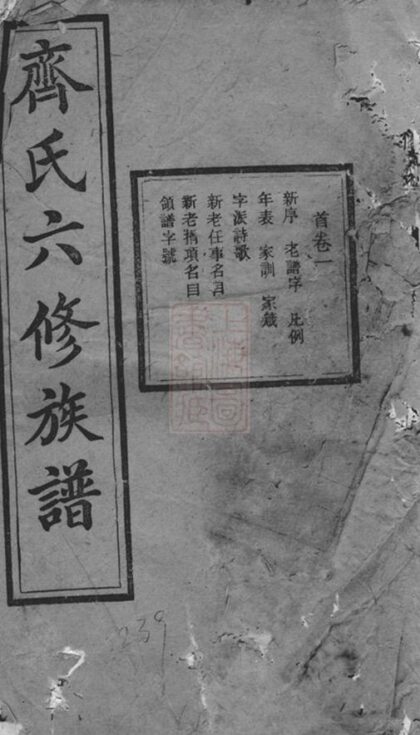 齊氏六修族譜
首卷一
新序 老譜字 凡例
年表 家訓 家箴
字派詩歌
新老任事名目
新老捐項名目
領譜字號
239